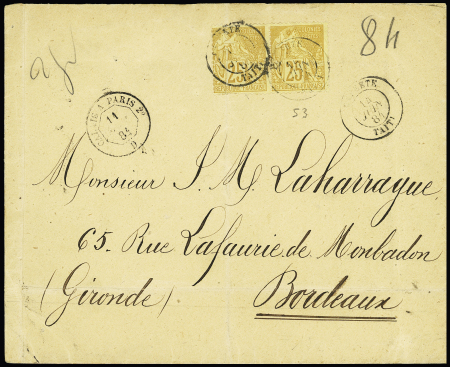 84
25
25
53
PARIS
11
84
TAITI
Monsieur J. M. Laharrague
65. Rue Lafaurie de Monbadon
(Gironde) Bordeaux